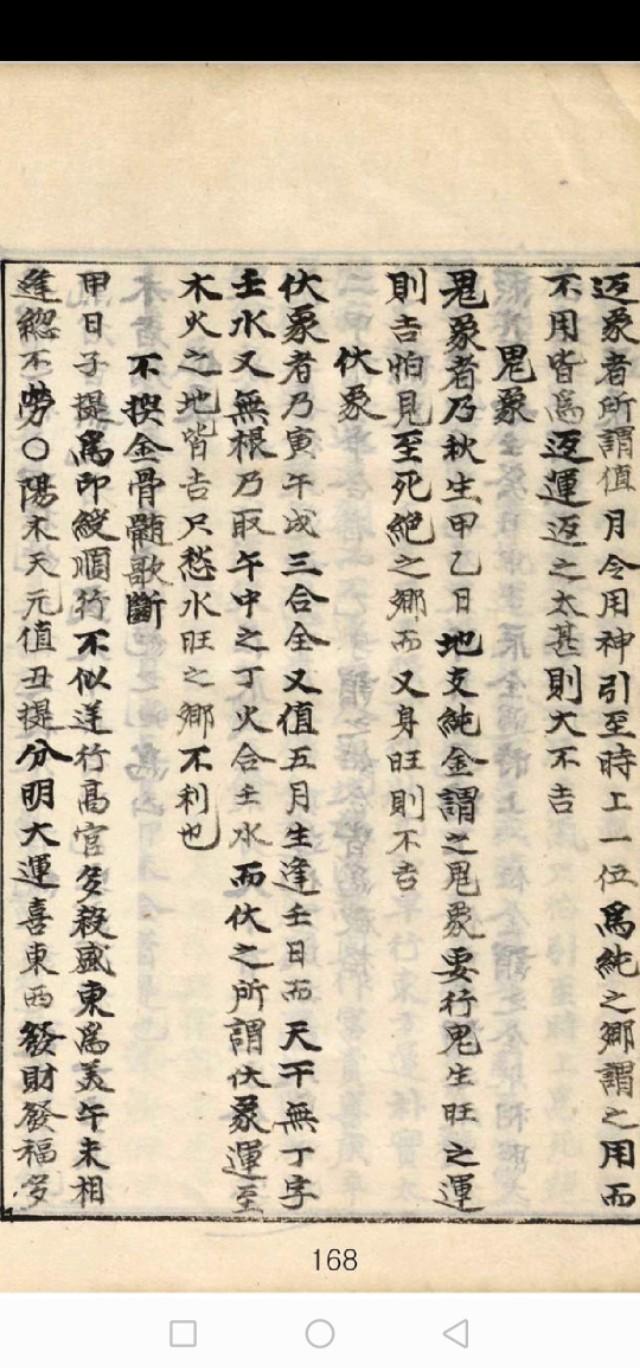 返象者所謂值月令用神引至時上一位為純之鄉謂之用而
不用皆為返運返之太甚則大不吉
鬼象
鬼象者乃秋生甲乙日地支純金謂之鬼象要行鬼生旺之運
則吉怕見至死絕之鄉而又身旺則不吉
伏象
伏象者乃寅午戌三合全又值五月生逢壬日而天干無丁字
壬水又無根乃取午中之丁火合壬水而伏之所謂伏象運至
木火之地皆吉只愁水旺之鄉不利也
不換金骨髓歌斷
甲日子提為印綬順行不似逆行高官多殺盛東為美午未相
逢總不勞○陽木天元值丑提分明大運喜東西發財發福多
168